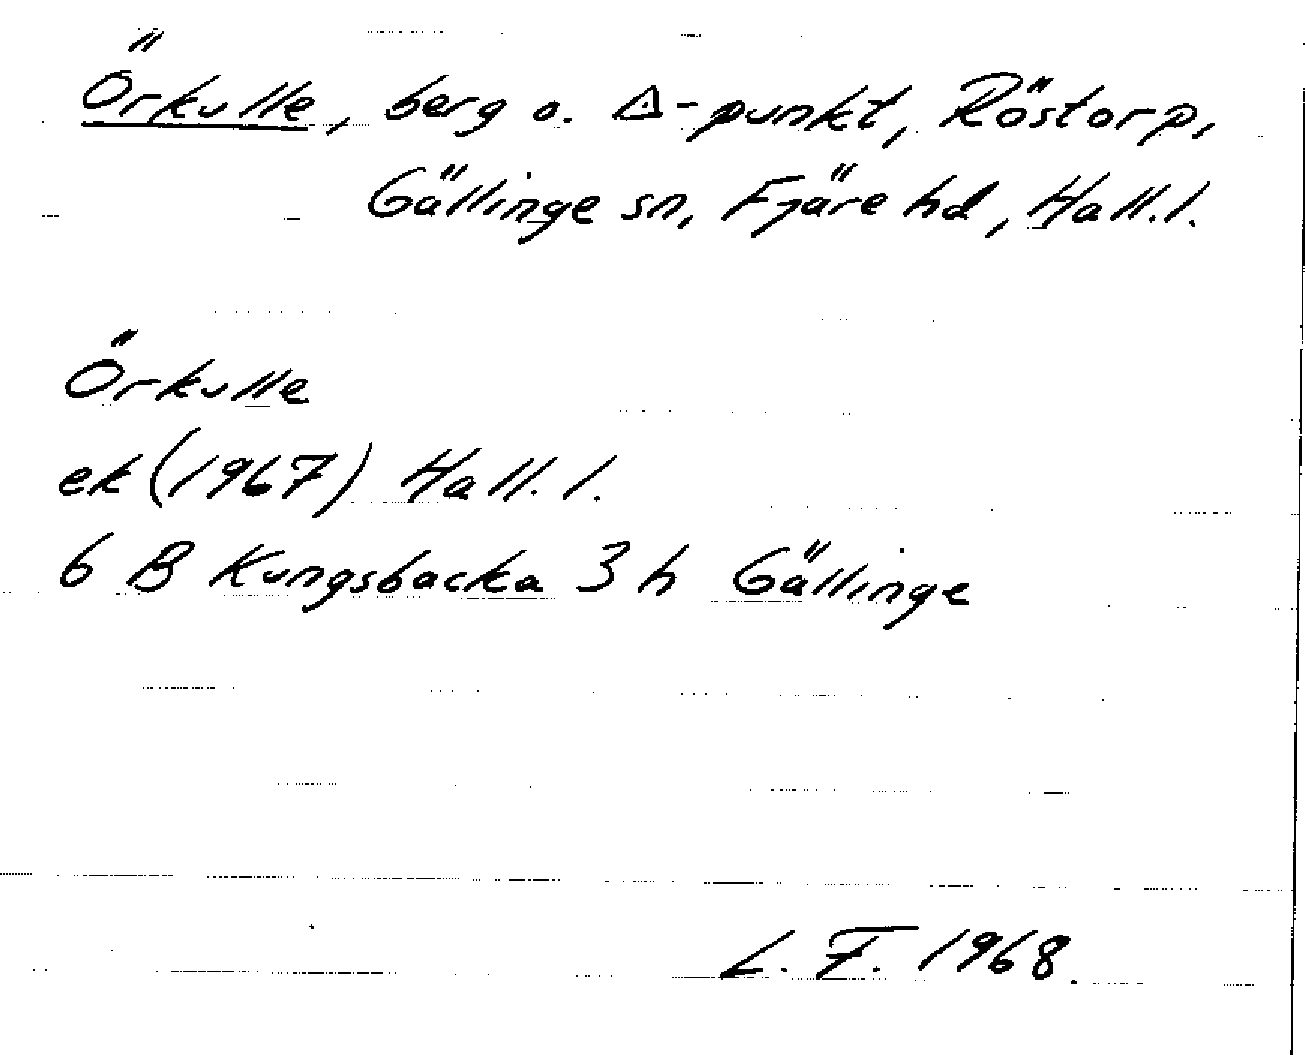 Örkulle, berg o. △-punkt, Röstorp,
Gällinge sn, Fjäre hd, Hall.l.
Örkulle
ek (1967) Hall.l.
6 B Kungsbacka 3 h Gällinge
L. F. 1968.